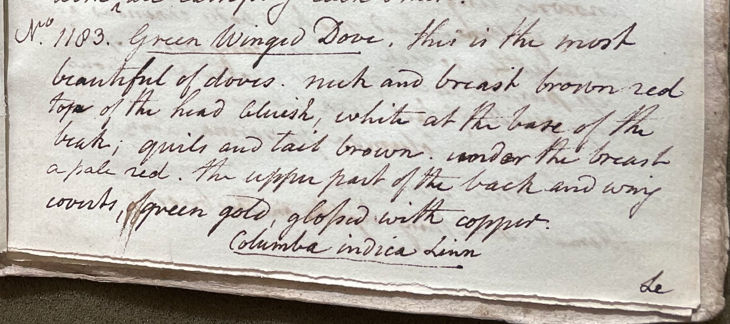 are
N.o 1183. Green Winged Dove. this is the most
beautiful of doves. neck and breast brown red
top of the head bluish, white at the base of the
beak; quils and tail brown. under the breast
a pale red. the upper part of the back and wing
coverts, of green gold, glossed with copper.
Columba indica Linn
Le